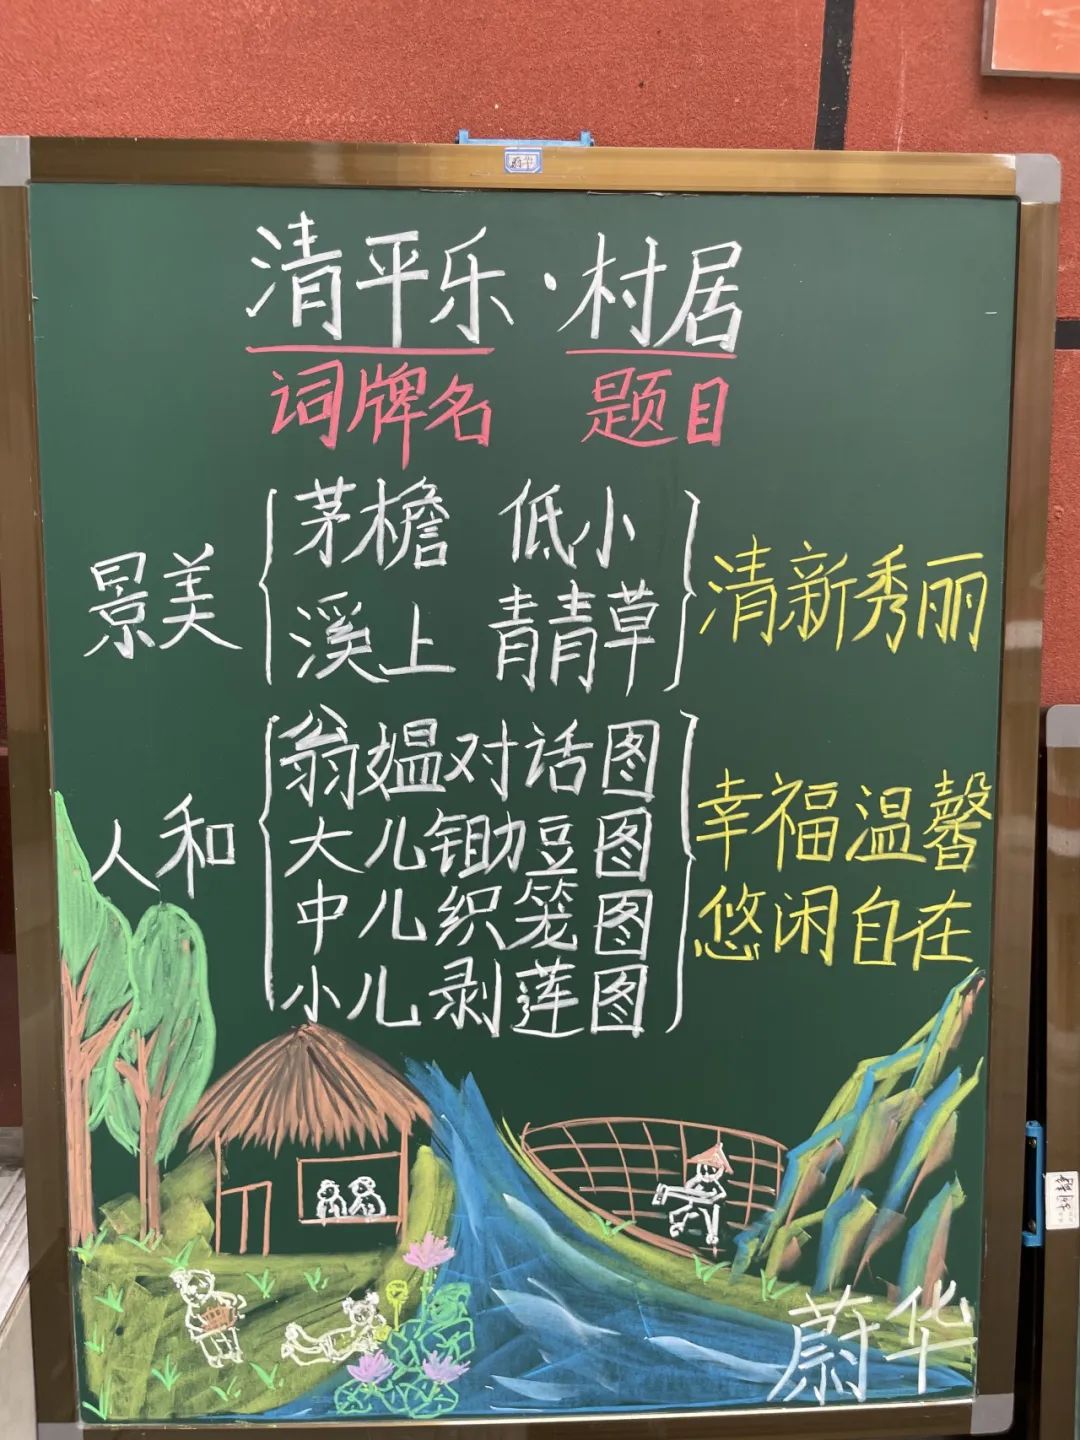 清平乐·村居
词牌名 题目
景美
茅檐 低小
溪上 青青草
清新秀丽
人和
翁媪对话图
大儿锄豆图
中儿织笼图
小儿剥莲图
幸福温馨
悠闲自在
蔚华